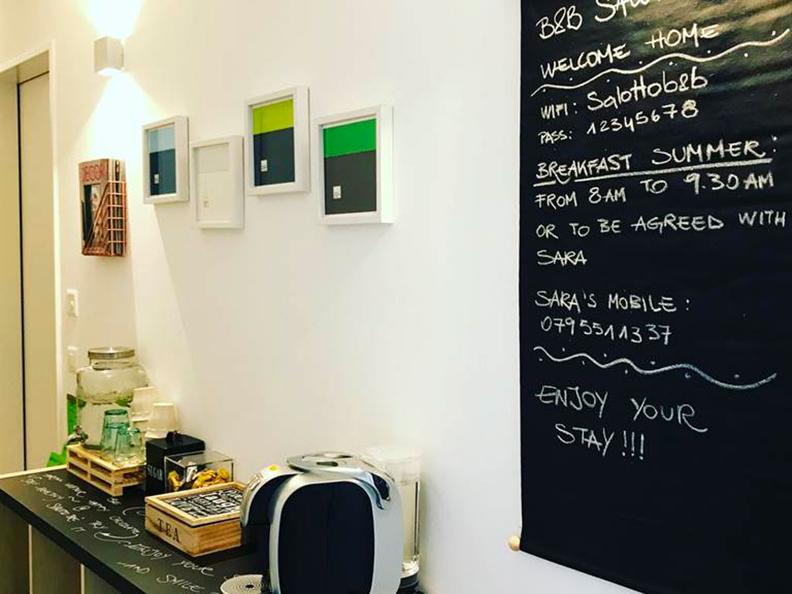 B&B
WELCOME HOME
WIFI: Salottob&b
PASS: 12345678
BREAKFAST SUMMER:
FROM 8 AM TO 9.30 AM
OR TO BE AGREED WITH
SARA
SARA'S MOBILE:
0795511337
ENJOY YOUR
STAY!!!
DECOR
SUGAR
TEA
ENJOY YOUR
AND SMILE